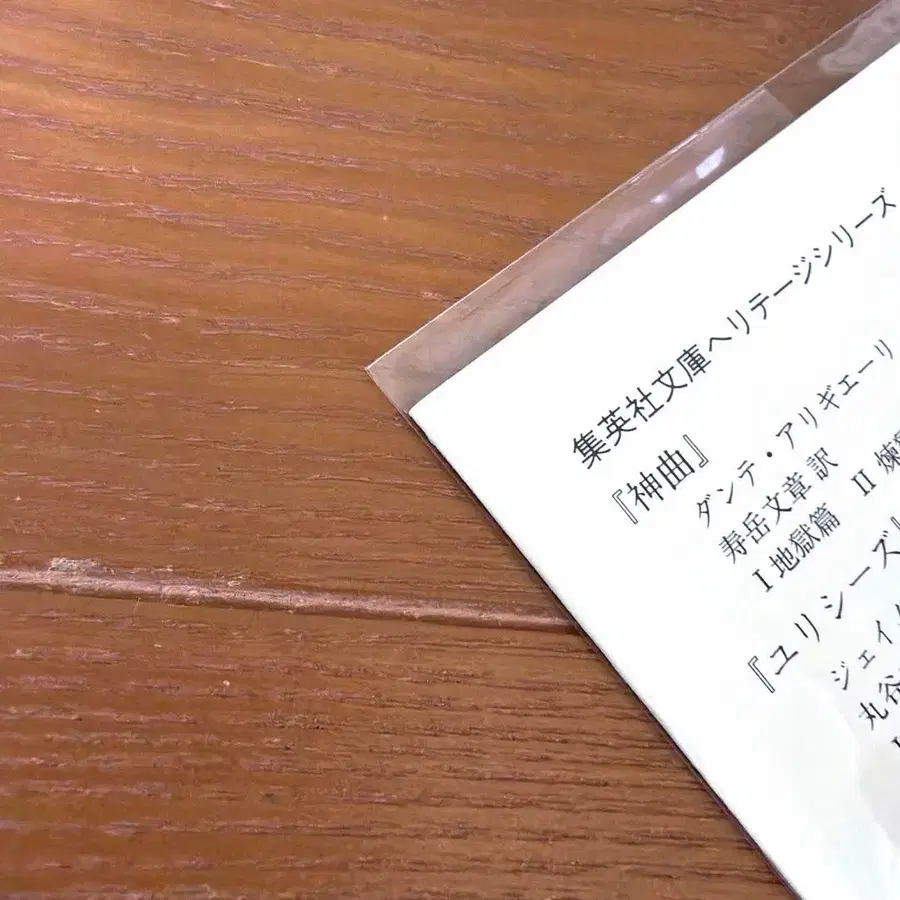 集英社文庫ヘリテージシリーズ
『神曲』
ダンテ・アリギエーリ
寿岳文章 訳
I 地獄篇 II 煉
『ユリシーズ』
ジェイ
丸谷